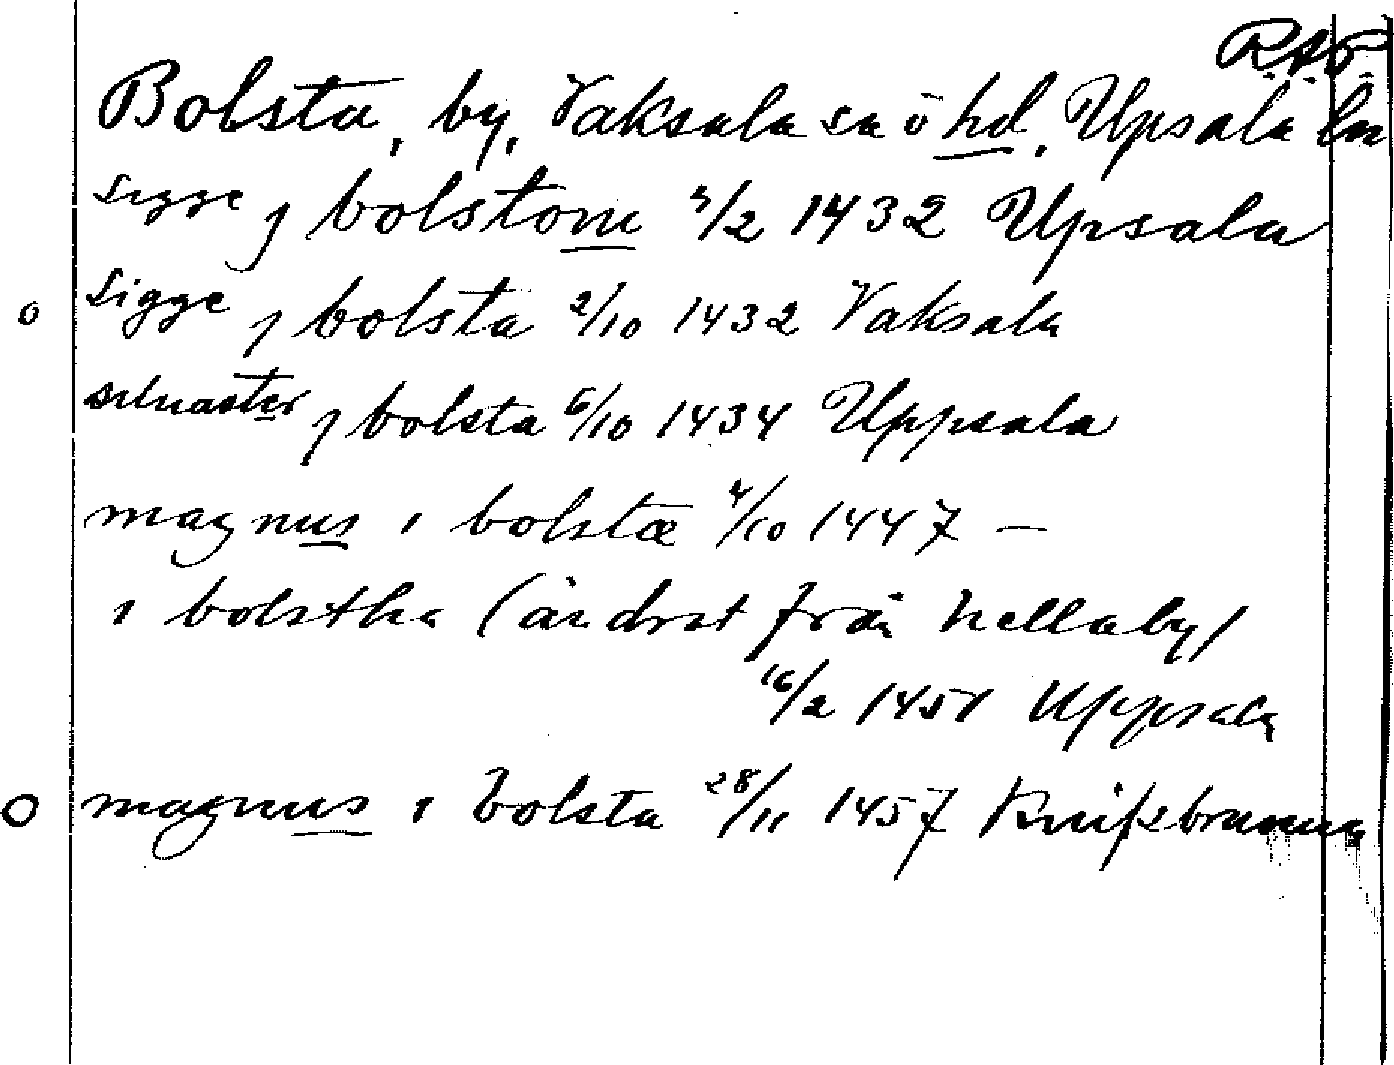 RAP
Bolsta, by, Vaksala sn o hd, Upsala län
sigge j bolstom 3/2 1432 Upsala
o sigge j bolsta 2/10 1432 Vaksala
siluaster j bolsta 6/10 1434 Uppsala
magnus i bolstæ 4/10 1447 —
i bolstha (ändrat från hellaby/
16/2 1451 Uppsala
o magnus i bolsta 28/11 1457 Knifsbrunna